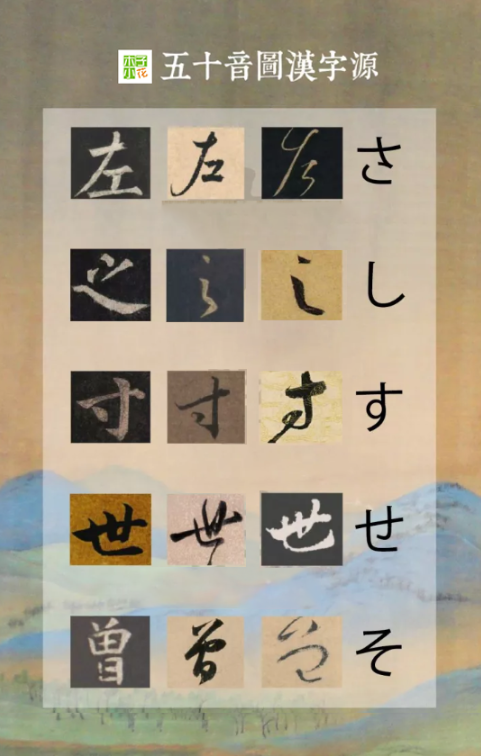 木子小花 五十音圖漢字源
左 左 左 さ
之 之 之 し
寸 寸 寸 す
世 世 世 せ
曽 曽 曽 そ